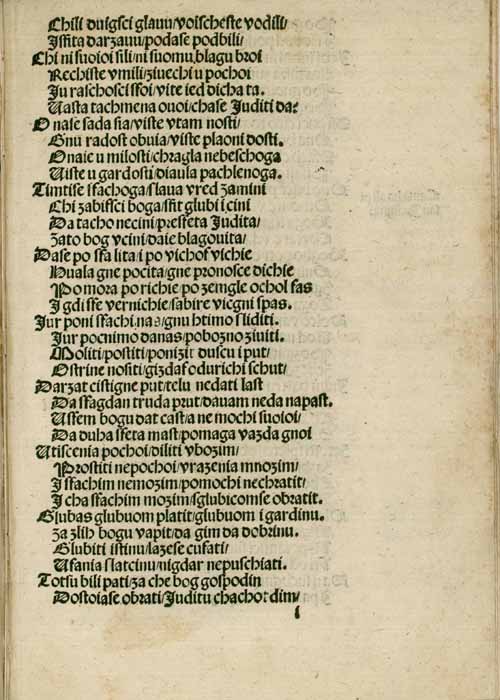 Chili duigsci glauu/voischeste vodili/
Issita darzauu/podase podbili/
Chi ni suoioi sili/ni suomu,blagu broi
Rechiste vmili/ziuechi u pochoi
Ju raschosci ssoi/vite ied dicha ta.
Uasta tachmena ouoi/chase Juditi da?
O naie sada sia/viste vtam nosti/
Gnu radost obuia/viste plaoni dosti.
Onaie u milosti/chragla nebeschoga
Uiste u gardosti/diaula pachlenoga.
Timtise ssachoga/slaua vred zamini
Chi zabissci boga/ssit glubi i cini
Da tacho necini/presseta Judita/
Zato bog vcini/daie blagouita/
Dase po ssa lita i po vichof vichie
Huala gne pocita/gne pronosce dichie
Po mora po richie/po zemgle ochol sas
I gdi sse vernichie/sabire viegni spas.
Jur poni ssachi,nas/gnu htimo sliditi.
Jur pocnimo danas/pobozno ziuiti.
Moliti/postiti/ponizit duscu i put/
Ostrine nositi/gizdaf odurichi schut/
Darzat cistigne put/telu nedati last
Da ssagdan truda prut/dauam neda napast.
Ussem bogu dat cast/a ne mochi suoioi/
Da duha sseta mast/pomaga vazda gnoi
Utiscenia pochoi/diliti vbozim/
Prostiti nepochoi/vrazenia mnozim/
I ssachim nemozim/pomochi nechratit/
I cha ssachim mozim/sglubicomse obratit.
Glubas glubuom platit/glubuom i gardinu.
Za zlih bogu vapit/da gim da dobrinu.
Glubiti istinu/lazese cufati/
Ufania slatcinu/nigdar nepuschiati.
Totsu bili pati/za che bog gospodin
Dostoiase,obrati/Juditu chachot dim/
i